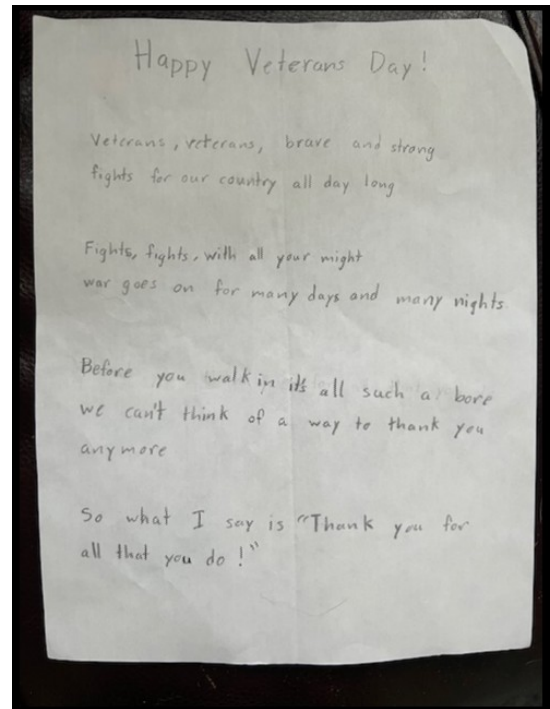 Happy Veterans Day!
Veterans, veterans, brave and strong
fights for our country all day long
Fights, fights, with all your might
war goes on for many days and many nights
Before you walk in it's all such a bore
we can't think of a way to thank you
anymore
So what I say is "Thank you for
all that you do!"